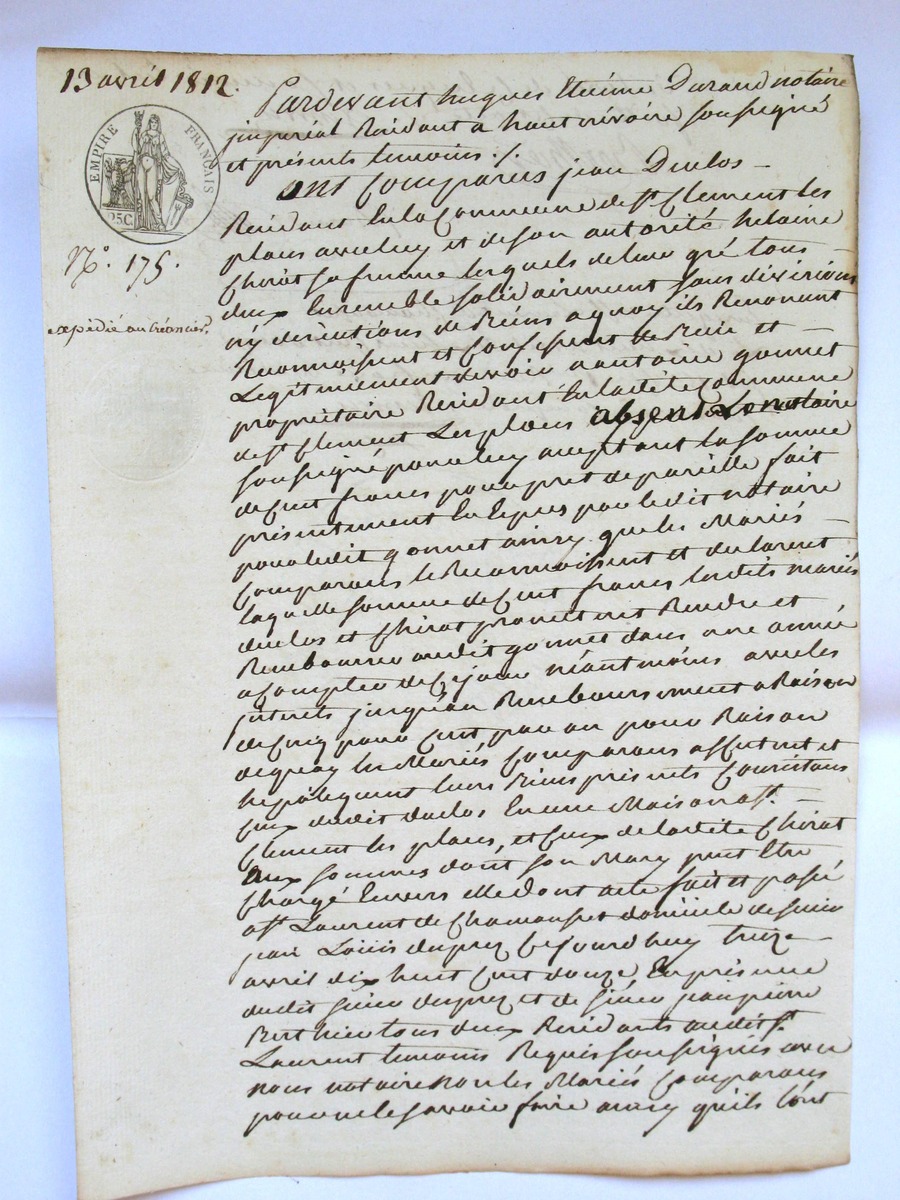 13 avril 1812.
EMPIRE FRANÇAIS
25C
N°. 175.
expédié au Créancier,
Pardevant hugues Etienne Durand notaire
jmperial Residant a hautrivoire soussigné
et présents temoins ./.
ont Comparus jean Duclos –
Residant En la Commune de st. Clement les
places avec luy et de son autorité
Chirat sa femme lesquels de leur gré tous –
deux Ensemble solidairement sans division
ny de Biens a quoy ils Renoncent
Reconnoissent et Confessent de Bien et –
Legitimement devoir a antoine gonnet
propriétaire Residant En ladite Commune
de st Clement Les places absent Le notaire
soussigné pour luy acceptant la somme
de Cent francs pour pret de pareille fait
présentement En Espèces par ledit notaire
pour ledit gonnet ainsy que les Mariés –
Comparans le Reconnoissent et declarent
laquelle somme de Cent francs lesdits mariés
duclos et Chirat promettent Rendre et
Rembourser audit gonnet dans une année
a Compter de Ce jour néantmoins avec les
jnterets jusqu'au Remboursement a Raison
de Cinq pour Cent par an pour Raison
de quoy les Mariés Comparans affectent et
hepotequent leurs Biens présents Consistans
Ceux dudit duclos En une Maison a st. –
Clement les places, et Ceux de ladite Chirat
aux sommes dont son Mary peut Etre
Chargé Envers Elle dont acte fait et passé
a st. Laurent de Chamousset domicile de sieur
jean Louis dupuy Cejourd'huy treize –
avril dix huit Cent douze, En présence
dudit sieur dupuy et de sieur jean pierre
Berthieu tous deux Residants audit st.
Laurent temoins Requis soussignés avec
nous notaire non les Mariés Comparans
pour ne le savoir faire ainsy qu'ils l'ont